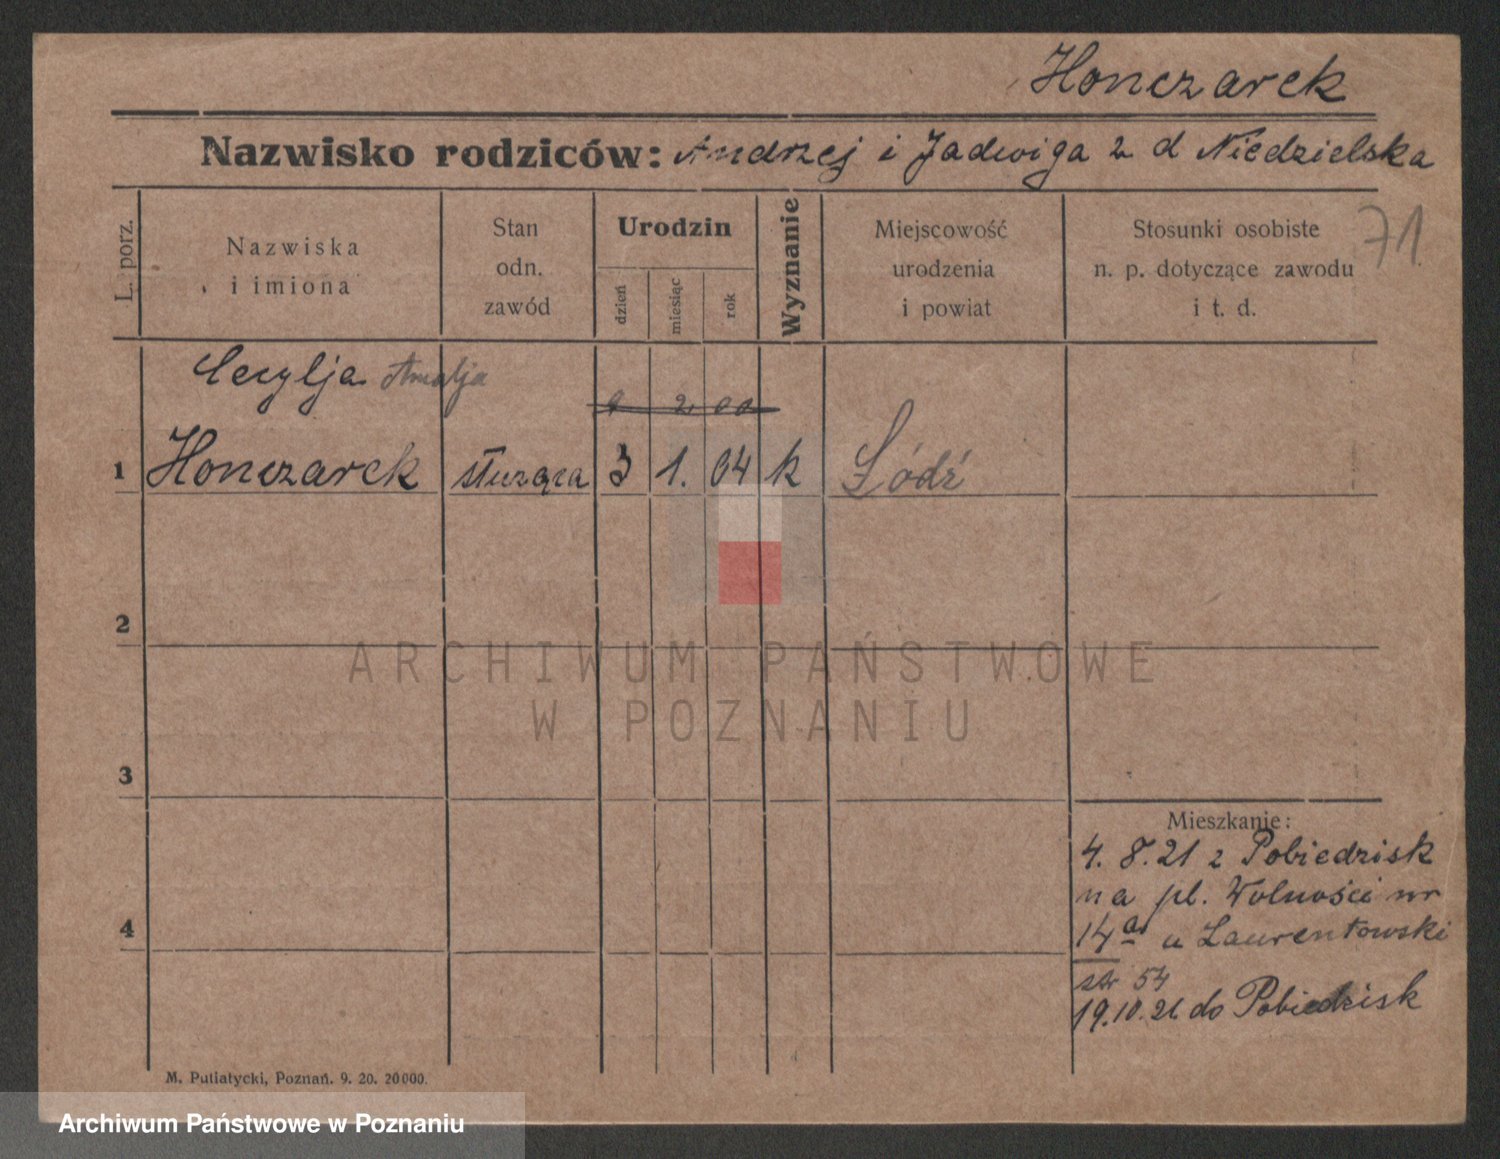 Honczarek
Nazwisko rodziców: Andrzej i Jadwiga z d Niedzielska
71
L. porz.
Nazwiska
i imiona
Stan
odn.
zawód
Urodzin
dzień
miesiąc
rok
Wyznanie
Miejscowość
urodzenia
i powiat
Stosunki osobiste
n. p. dotyczące zawodu
i t. d.
Cecylja Amalja
9 2 00
1 Honczarek służąca 3 1. 04 k Łódź
2
3
4
ARCHIWUM PAŃSTWOWE
W POZNANIU
Mieszkanie:
4. 8. 21 z Pobiedzisk
na pl. Wolności nr
14a u Laurentowski
str 54
19.10.21 do Pobiedzisk
M. Putiatycki, Poznań. 9. 20. 20000.
Archiwum Państwowe w Poznaniu